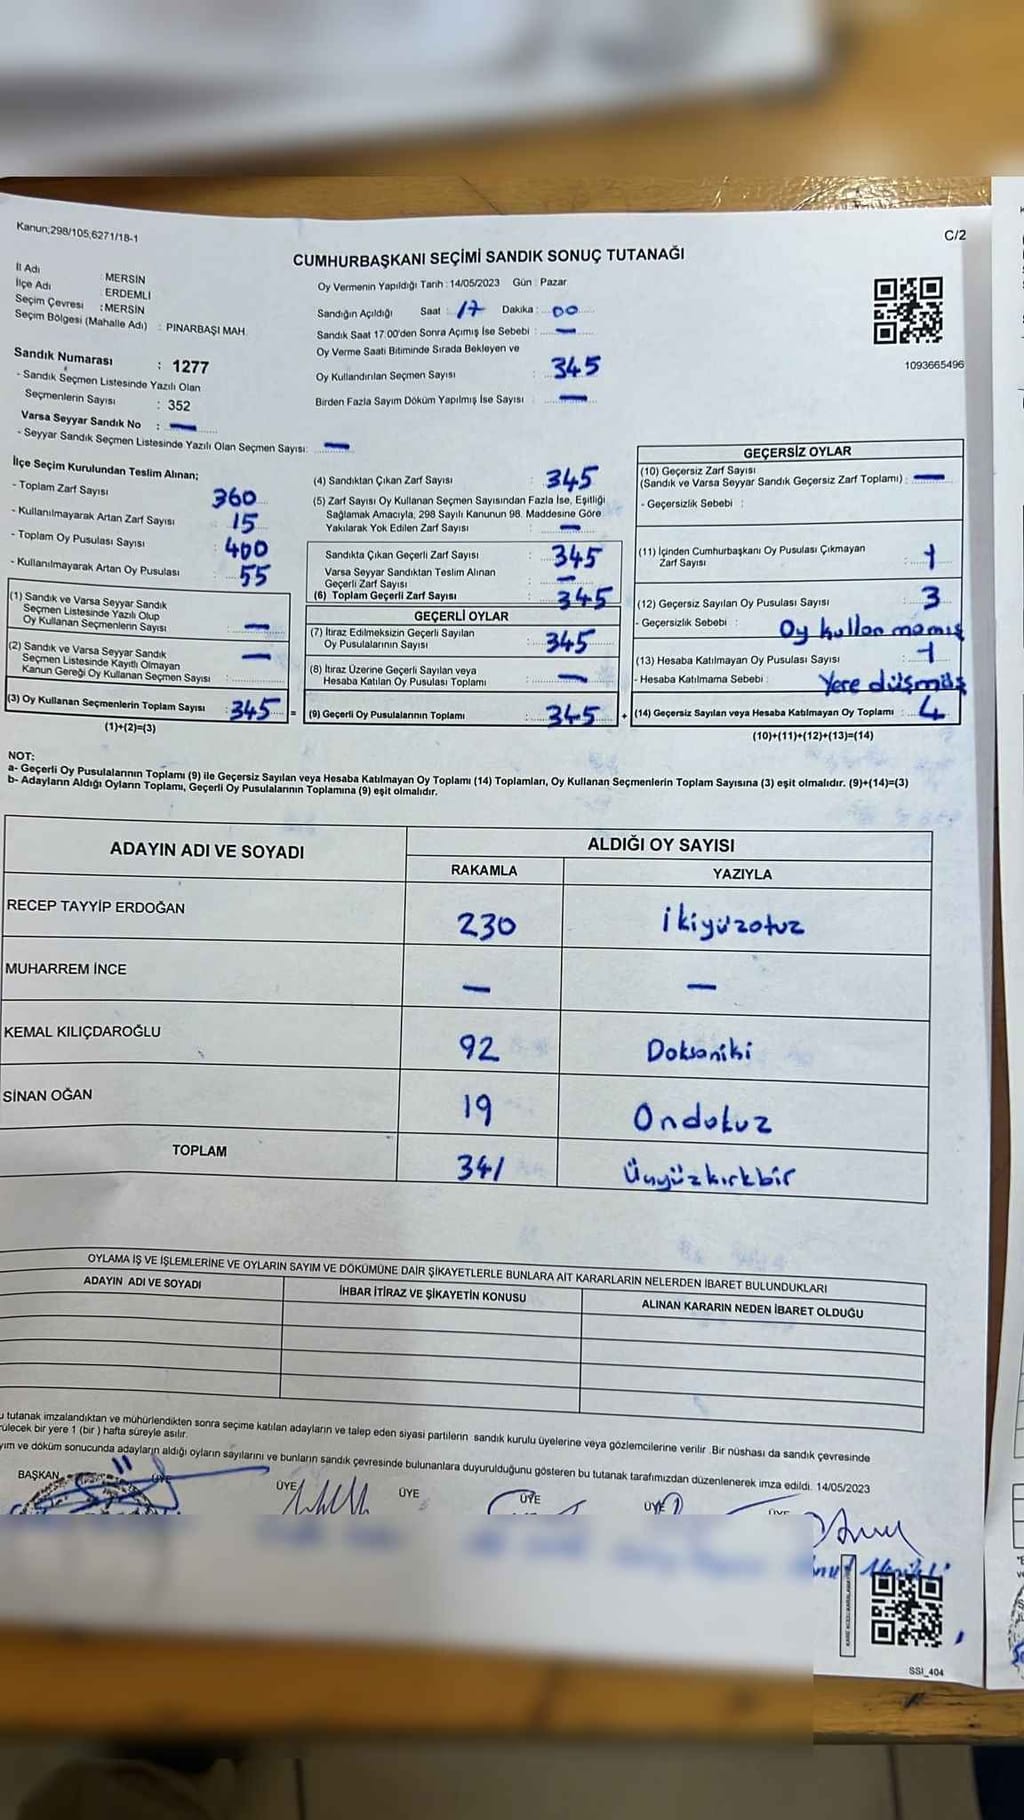 Kanun;298/105,6271/18-1
C/2
CUMHURBAŞKANI SEÇİMİ SANDIK SONUÇ TUTANAĞI
İl Adı : MERSİN
İlçe Adı : ERDEMLİ
Seçim Çevresi : MERSİN
Seçim Bölgesi (Mahalle Adı) : PINARBAŞI MAH.
Sandık Numarası : 1277
- Sandık Seçmen Listesinde Yazılı Olan
Seçmenlerin Sayısı : 352
Varsa Seyyar Sandık No : —
- Seyyar Sandık Seçmen Listesinde Yazılı Olan Seçmen Sayısı: —
Oy Vermenin Yapıldığı Tarih : 14/05/2023 Gün : Pazar
Sandığın Açıldığı Saat : 17 Dakika : 00
Sandık Saat 17:00'den Sonra Açımış İse Sebebi : —
Oy Verme Saati Bitiminde Sırada Bekleyen ve
Oy Kullandırılan Seçmen Sayısı : 345
Birden Fazla Sayım Döküm Yapılmış İse Sayısı : —
1093665496
İlçe Seçim Kurulundan Teslim Alınan;
- Toplam Zarf Sayısı : 360
- Kullanılmayarak Artan Zarf Sayısı : 15
- Toplam Oy Pusulası Sayısı : 400
- Kullanılmayarak Artan Oy Pusulası : 55
(1) Sandık ve Varsa Seyyar Sandık
Seçmen Listesinde Yazılı Olup
Oy Kullanan Seçmenlerin Sayısı : —
(2) Sandık ve Varsa Seyyar Sandık
Seçmen Listesinde Kayıtlı Olmayan
Kanun Gereği Oy Kullanan Seçmen Sayısı : —
(3) Oy Kullanan Seçmenlerin Toplam Sayısı : 345 =
(1)+(2)=(3)
(4) Sandıktan Çıkan Zarf Sayısı : 345
(5) Zarf Sayısı Oy Kullanan Seçmen Sayısından Fazla İse, Eşitliği
Sağlamak Amacıyla, 298 Sayılı Kanunun 98. Maddesine Göre
Yakılarak Yok Edilen Zarf Sayısı : —
Sandıkta Çıkan Geçerli Zarf Sayısı : 345
Varsa Seyyar Sandıktan Teslim Alınan
Geçerli Zarf Sayısı : —
(6) Toplam Geçerli Zarf Sayısı : 345
GEÇERLİ OYLAR
(7) İtiraz Edilmeksizin Geçerli Sayılan
Oy Pusulalarının Sayısı : 345
(8) İtiraz Üzerine Geçerli Sayılan veya
Hesaba Katılan Oy Pusulası Toplamı : —
(9) Geçerli Oy Pusulalarının Toplamı : 345 +
GEÇERSİZ OYLAR
(10) Geçersiz Zarf Sayısı
(Sandık ve Varsa Seyyar Sandık Geçersiz Zarf Toplamı) : —
- Geçersizlik Sebebi :
(11) İçinden Cumhurbaşkanı Oy Pusulası Çıkmayan
Zarf Sayısı : 1
(12) Geçersiz Sayılan Oy Pusulası Sayısı : 3
- Geçersizlik Sebebi : Oy kullanmamış
(13) Hesaba Katılmayan Oy Pusulası Sayısı : 1
- Hesaba Katılmama Sebebi : Yere düşmüş
(14) Geçersiz Sayılan veya Hesaba Katılmayan Oy Toplamı : 4
(10)+(11)+(12)+(13)=(14)
NOT:
a- Geçerli Oy Pusulalarının Toplamı (9) ile Geçersiz Sayılan veya Hesaba Katılmayan Oy Toplamı (14) Toplamları, Oy Kullanan Seçmenlerin Toplam Sayısına (3) eşit olmalıdır. (9)+(14)=(3)
b- Adayların Aldığı Oyların Toplamı, Geçerli Oy Pusulalarının Toplamına (9) eşit olmalıdır.
ADAYIN ADI VE SOYADI ALDIĞI OY SAYISI
RAKAMLA YAZIYLA
RECEP TAYYİP ERDOĞAN 230 İkiyüzotuz
MUHARREM İNCE — —
KEMAL KILIÇDAROĞLU 92 Doksaniki
SİNAN OĞAN 19 Ondokuz
TOPLAM 341 Üçyüzkırkbir
OYLAMA İŞ VE İŞLEMLERİNE VE OYLARIN SAYIM VE DÖKÜMÜNE DAİR ŞİKAYETLERLE BUNLARA AİT KARARLARIN NELERDEN İBARET BULUNDUKLARI
ADAYIN ADI VE SOYADI İHBAR İTİRAZ VE ŞİKAYETİN KONUSU ALINAN KARARIN NEDEN İBARET OLDUĞU
u tutanak imzalandıktan ve mühürlendikten sonra seçime katılan adayların ve talep eden siyasi partilerin sandık kurulu üyelerine veya gözlemcilerine verilir. Bir nüshası da sandık çevresinde
rülecek bir yere 1 (bir) hafta süreyle asılır.
yım ve döküm sonucunda adayların aldığı oyların sayılarını ve bunların sandık çevresinde bulunanlara duyurulduğunu gösteren bu tutanak tarafımızdan düzenlenerek imza edildi. 14/05/2023
BAŞKAN ÜYE ÜYE ÜYE ÜYE ÜYE ÜYE
SSİ_404